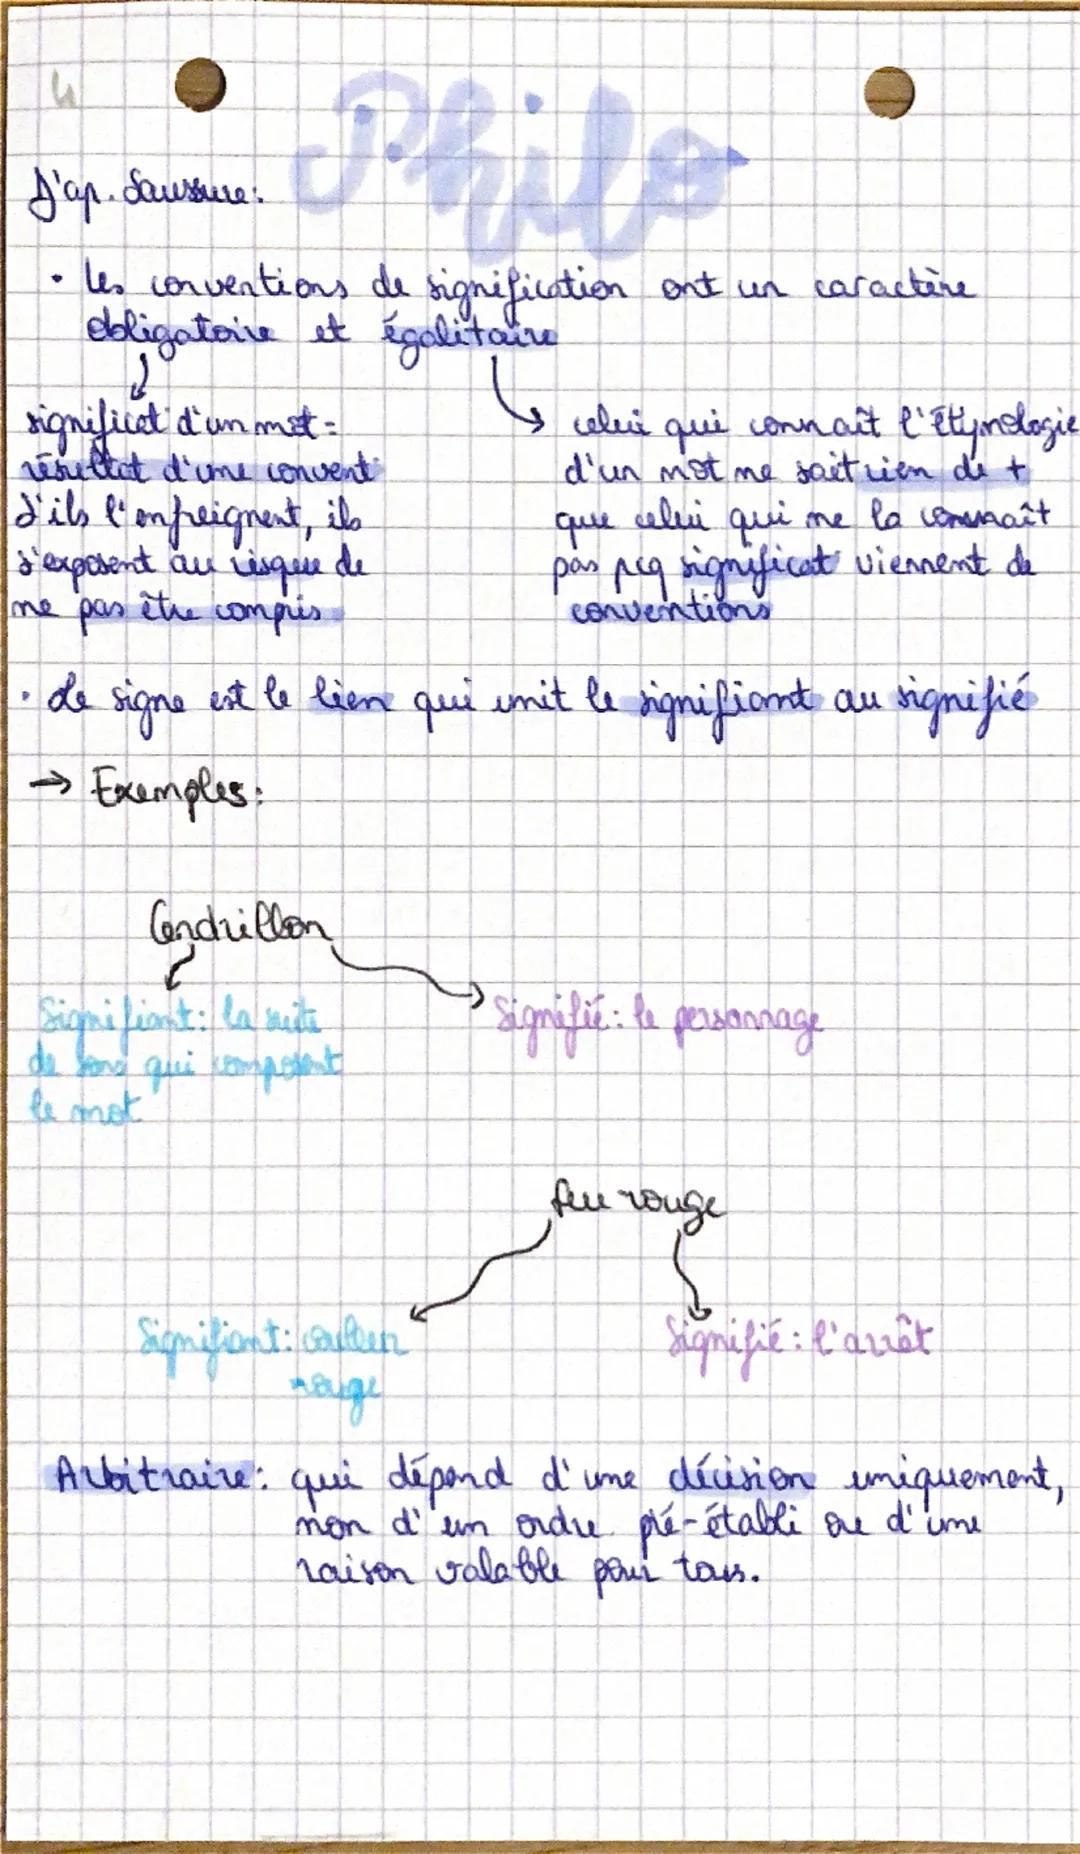 4
Philo
D'ap. Saussure:
• Les conventions de signification ont un caractère
obligatoire et égalitaire
significat° d'un mot =
résultat d'une convent°
S'ils l'enfreignent, ils
s'exposent au risque de
ne pas être compris
celui qui connaît l'étymologie
d'un mot ne sait rien de +
que celui qui ne la connaît
pas pcq significat° viennent de
conventions
• Le signe est le lien qui unit le signifiant au signifié
→ Exemples:
Cendrillon
Signifiant: la suite
de sons qui composent
le mot
Signifié: le personnage
feu rouge
Signifiant: couleur
rouge
Signifié: l'arrêt
Arbitraire: qui dépend d'une décision uniquement,
non d'un ordre pré-établi ou d'une
raison valable pour tous.